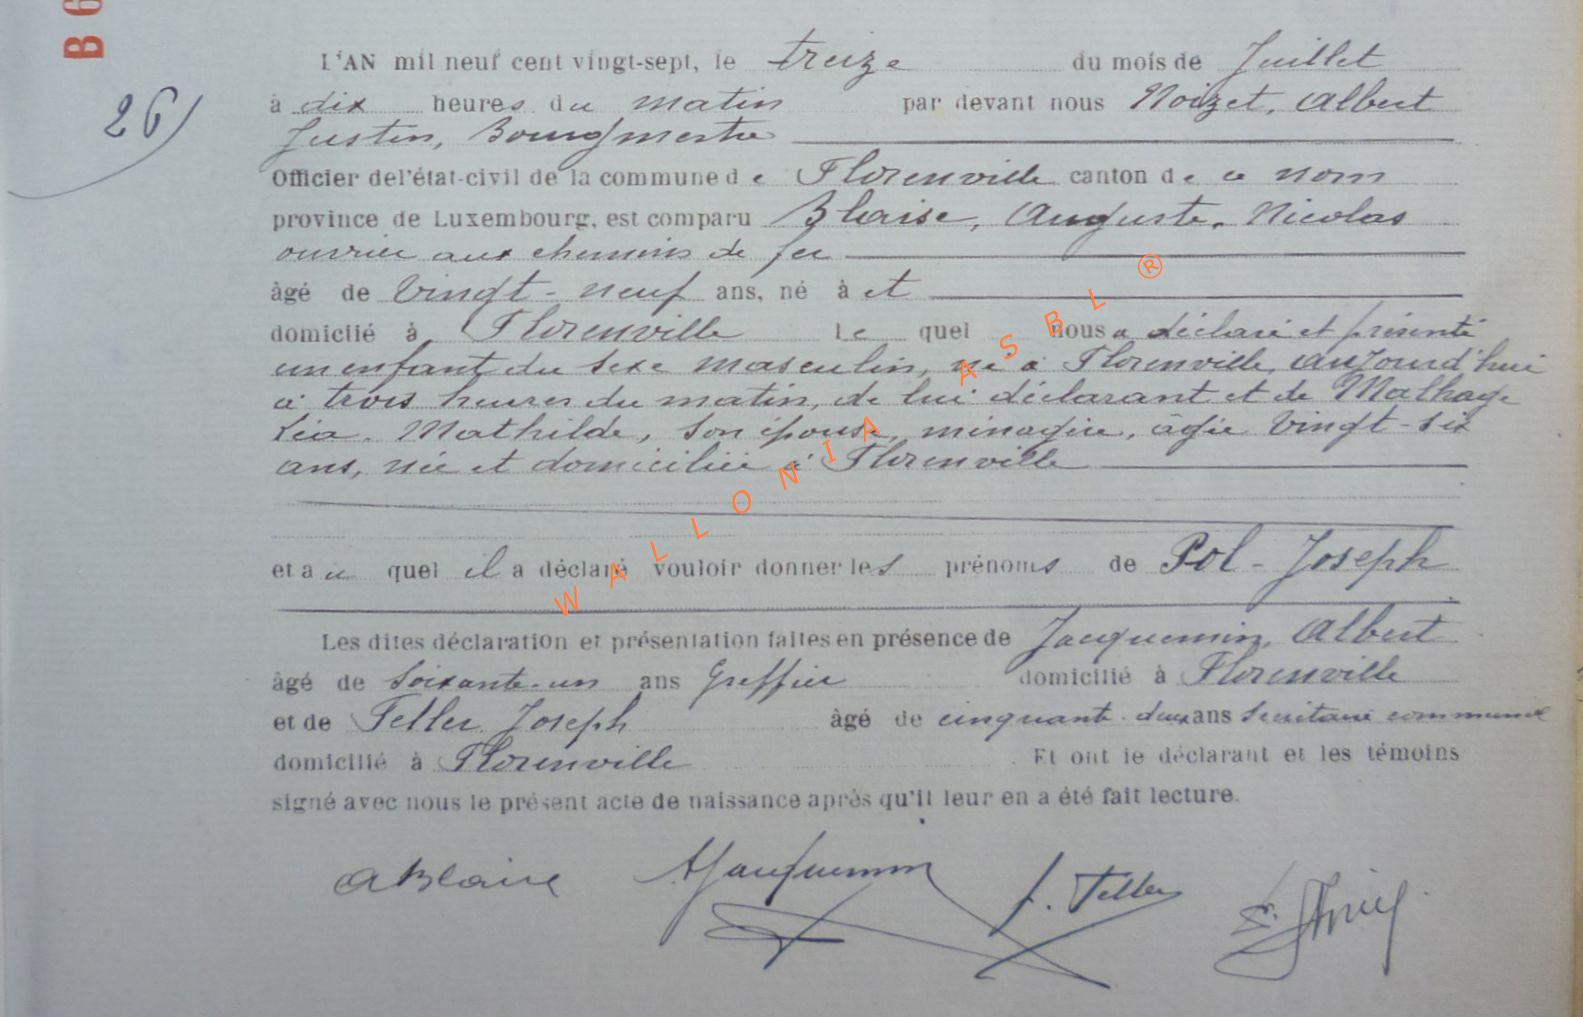 B 6
L'AN mil neuf cent vingt-sept, le treize du mois de Juillet
26
à dix heures du matin par devant nous Noizet, Albert
Justin, Bourgmestre
Officier de l'état-civil de la commune de Florenville canton de ce nom
province de Luxembourg, est comparu Blaise, Auguste, Nicolas
ouvrier aux chemins de fer
âgé de Vingt-neuf ans, né à et
domicilié à Florenville Le quel nous a déclaré et présenté
un enfant du sexe masculin, né à Florenville, aujourd'hui
à trois heures du matin, de lui déclarant et de Mathay
Léa. Mathilde, son épouse, ménagère, âgée Vingt-six
ans, née et domiciliée à Florenville
et au quel il a déclaré vouloir donner les prénoms de Pol-Joseph
Les dites déclaration et présentation faites en présence de Jacquemin, Albert
âgé de soixante-un ans Greffier domicilié à Florenville
et de Feller Joseph âgé de cinquante-deux ans Secrétaire communal
domicilié à Florenville Et ont le déclarant et les témoins
signé avec nous le présent acte de naissance après qu'il leur en a été fait lecture.
ABlaise AJacquemin J. Feller
WALLONIA ASBL ®